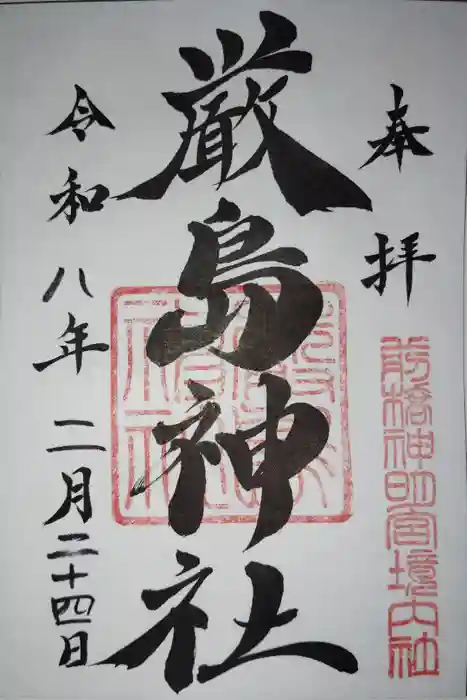 奉拝
前橋神明宮境内社
厳島神社
令和八年二月二十四日